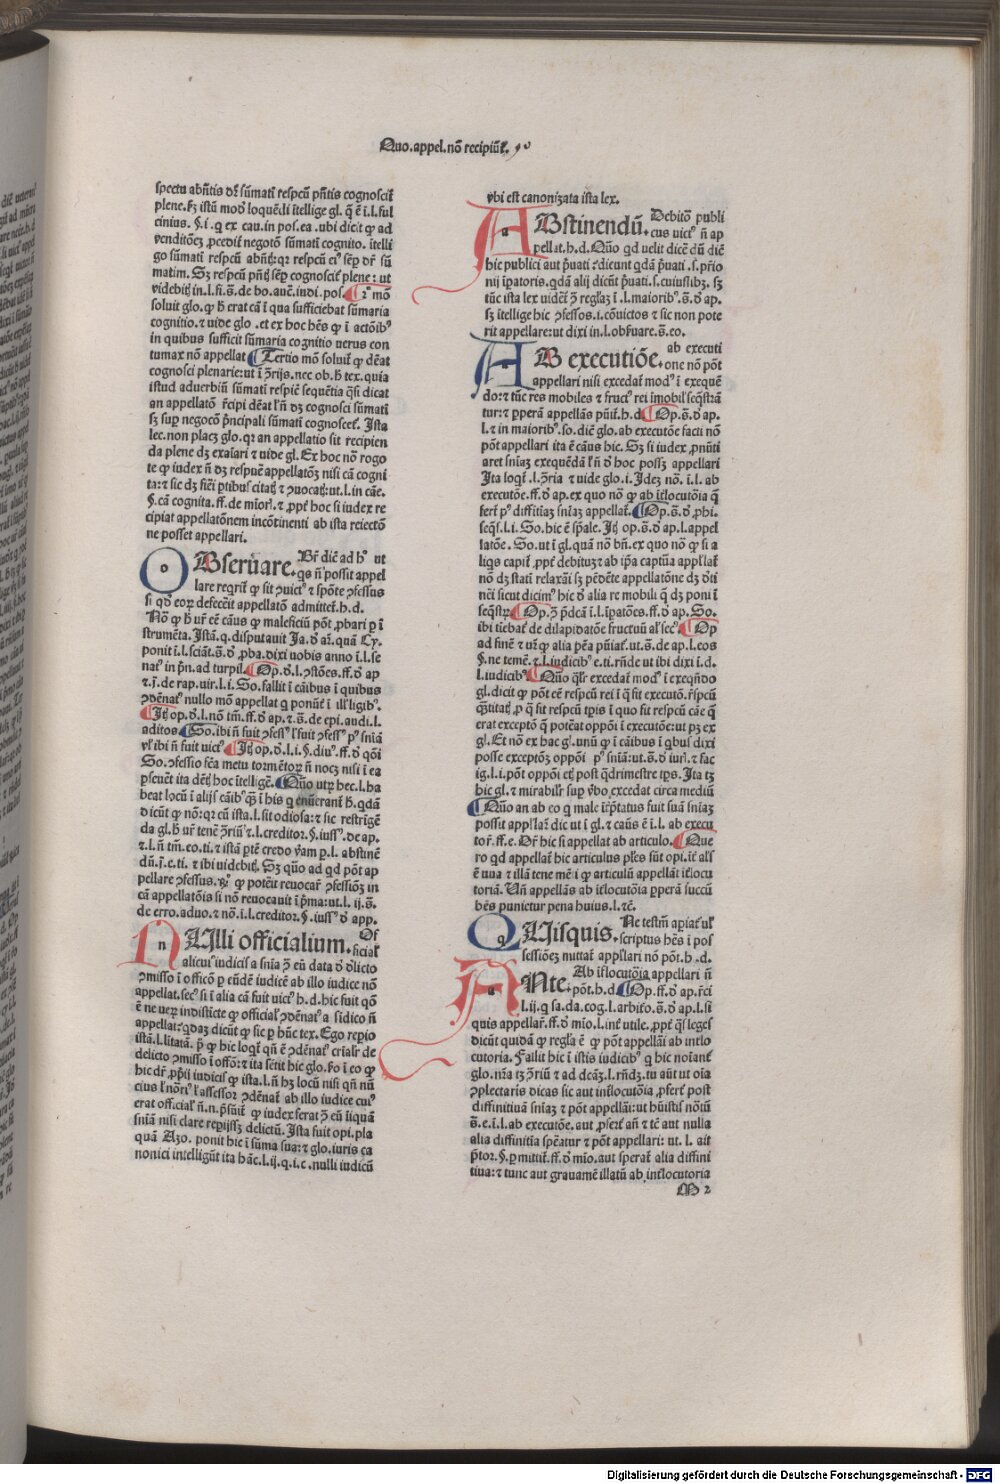 Quo.appel.nō recipiūt.
spectu abn̄tis dꝛ sūmati respcū pn̄tis cognoscit
plene. istū modū loquēdi itellige gl. q̄ ē i.l.ful
cinius. §.i.q ex cau.in pos.ea.ubi dicit ꝙ ad
venditōeꝫ ꝓcedit negotō sūmati cognito. itelli
go sūmati respcū abn̄tꝫ: qꝛ respcū ei⁹ sēꝑ dꝛ sū
matim. Sꝫ respcū pn̄tꝫ sēꝑ cognoscit plene: ut
videbitꝫ in.l.fi.s̄.de bo.auc̄.iudi.pos. 2⁹ mō
soluit glo.ꝙ ħ erat cā i qua sufficiebat sūmaria
cognitio.⁊ vide glo.et ex hoc hēs ꝙ i actōib⁹
in quibus sufficit sūmaria cognitio verus con
tumax nō appellat Tertio mō soluit ꝙ dēat
cognosci plenarie: ut i ꝯrijs. nec ob. ħ tex. quia
istud adverbiū sūmati respic̄ sequētia q̄si dicat
an appellatō r̄cipi dēat l n̄ dꝫ cognosci sūmati
sꝫ suꝑ negocō p̄ncipali sūmati cognoscet. Ista
lec. non placꝫ glo. qꝛ an appellatio sit recipien
da plene dꝫ exaiari ⁊ vide gl. Ex hoc nō rogo
te ꝙ iudex n̄ dꝫ respuē appellatōꝫ nisi cā cogni
ta: ⁊ sic dꝫ fieri ꝑtibus citatꝫ ⁊ ꝯuocatꝫ: ut.l.in cāe.
§.cā cognita.ff.de mīori. ⁊ ꝓpt hoc si iudex re
cipiat appellatōnem incōtinenti ab ista reiectō
ne posset appellari.
o Bservare. Br̄ dic̄ ad h⁹ ut
qs n̄ possit appel
lare reqrit ꝙ sit ꝯuict⁹ ⁊ spōte ꝯfessus
si qd eoꝝ defecerit appellatō admittet.h.d.
Nō ꝙ ħ ur̄ eē cāus ꝙ maleficiū pōt ꝓbari ꝑ i
strumēta. Istā.q.disputavit Ja.d̄ ar. quā Cy.
ponit i.l.sciāt.s̄.d̄ ꝓba. dixi vobis anno i.l.se
nat⁹ in pn̄. ad turpil. Op.d̄.l.ꝯstōes.ff.d̄ ap
⁊.j.de rap.vir.l.i. So. fallit i cāibus i quibus
ꝯdēnat⁹ nullo mō appellat q ponūt i ill⁹ligib⁹.
Jtꝫ op.d̄.l.nō tm̄.ff.d̄ ap.⁊.s̄.de epi.audi.l.
aditos So. ibi n̄ fuit ꝯfess⁹ l fuit ꝯfess⁹ pꝰ sniā
vl ibi n̄ fuit vict⁹ Jtꝫ op.d̄.l.i.§.div⁹.ff.d̄ qōi
So. ꝯfessio fēa metu tormētoꝝ n̄ nocꝫ nisi i ea
ꝑsevēt ita dētꝫ hoc itellige. Quō utꝝ hec.l.ha
beat locū i alijs cāib⁹ q̄ i his q enūerant ħ. qdā
dicūt ꝙ nō: qꝛ cū ista.l.sit odiosa: ⁊ sic restrīgē
da gl. ħ ur̄ tenē ꝯriū ⁊.l.creditoꝛ.§.iuss⁹.de ap.
⁊.l.n̄ tm̄.eo.ti.⁊ istā ꝑtē credo v̄am ꝑ.l.abstinē
dū.j.e.ti.⁊ ibi videbitꝫ. Sꝫ quō ad qd pōt ap
pellare ꝯfessus. ꝙ potēit revocar̄ ꝯfessiōꝫ in
cā appellatōis si nō revocavit i p̄ma: ut.l.ij.s̄.
de erro.advo.⁊ nō.i.l.creditoꝛ.§.iuss⁹ d̄ app.
n Ulli officialium. Of
ficial
alicui⁹ iudicis a snia ꝯ eū data d̄ dlicto
ꝯmisso i officō ꝑ eūdē iudicē ab illo iudice nō
appellat. sec⁹ si i alia cā fuit vict⁹ h.d. hic fuit qō
ē ne veꝝ indistīcte ꝙ official ꝯdēnat⁹ a sidico n̄
appellat: qdaꝫ dicūt ꝙ sic ꝑ hūc tex. Ego reꝑio
istā.l.litatā. p̄ ꝙ hic loqt qn̄ ē ꝯdēnat⁹ crīalr de
delicto ꝯmisso i offō: ⁊ ita sētit hic glo. fo i eo ꝙ
hic dr̄. ꝓp̄ij iudicis ꝙ ista.l.n̄ hꝫ locū nisi qn̄ nū
cius l nori⁹ l assessoꝛ ꝯdēnat ab illo iudice cui⁹
erat official. n̄.n. p̄sūit ꝙ iudex ferat ꝯ eū liquā
sniā nisi clare reꝑijssꝫ delictū. Ista fuit opi. pla
quā Azo. ponit hic i sūma sua: ⁊ glo. iuris ca
nonici intelligūt ita hāc.l.ij.q.i.c. nulli iudicū
vbi est canonizata ista lex.
a Bstinendū. Debitō publi
cus uict⁹ n̄ ap
pellat.h.d. Quō qd velit dicē dū dic̄
hic publici aut p̄vati: dicunt qdā p̄vati.s.pr̄io
nij ip̄atoris. qdā alij dicūt p̄vati.s.cuiuslibꝫ. sꝫ
tūc ista lex videt ꝯ reglaꝫ i.l.maiorib⁹.s̄.d̄ ap.
sꝫ itellige hic ꝯfessos.i.cōvictos ⁊ sic non pote
rit appellare: ut dixi in.l.obsvare.s̄.eo.
a B executiōe. ab executi
one nō pōt
appellari nisi excedat mod⁹ i exequē
do: ⁊ tūc res mobiles ⁊ fruct⁹ rei imobil seq̄stra
tur: ⁊ ꝑperā appellās pūit.h.d. Op.s̄.d̄ ap.
l.⁊ in maiorib⁹. so. dic̄ glo. ab executōe facti nō
pōt appellari ita ē cāus hic. Sꝫ si iudex ꝓnūti
aret sniaꝫ exequēdā l n̄ d̄ hoc possꝫ appellari
Ita loqt.l.ꝯria ⁊ vide glo.i. Jdeꝫ nō.i.l.ab
executōe.ff.d̄ ap. ex quo nō ꝙ ab itlocutōia q̄
fert p⁹ diffitiaꝫ sniaꝫ appellat. Op.s̄.d̄ ꝓhi.
seq̄s.l.i. So. hic ē sp̄ale. Jtꝫ op.s̄.d̄ ap.l.appel
latōe. So. ut i gl. quā nō bn̄. ex quo nō ꝙ si a
liqs capit ꝓpt debituꝫ ⁊ ab ip̄a captiva applat
nō dꝫ stati relaxāi sꝫ pēdēte appellatōne dꝫ d̄ti
nēi sicut dicim⁹ hic d̄ alia re mobili q̄ dꝫ poni i
seq̄str. Op.ꝯ p̄dcā i.l.ip̄atōes.ff.d̄ ap. So.
ibi tiebat de dilapidatōe fructuū al sec⁹. Op
ad finē ⁊ ur̄ ꝙ alia pēa pūiat. ut.s̄.de ap.l.eos
§.ne temē.⁊.l.iudicib⁹.e.ti. r̄nde ut ibi dixi i.d.
l.iudicib⁹ Quō qlr̄ excedat mod⁹ i exeqndo
gl. dicit ꝙ pōt eē respcū rei i q̄ sit executō. r̄spcū
q̄titatꝫ ꝓ q̄ sit respcū tp̄is i quo sit respcū cāe q̄
erat exceptō q̄ potēat oppōi i executōe: ut pꝫ ex
gl. Et nō ex hac gl. unū ꝙ i cāibus i qbus dixi
posse exceptōꝫ oppōi p⁹ sniā: ut.s̄.d̄ iur.⁊ fac
ig.l.i. pōt oppōi etꝫ post q̄drimestre tp̄s. Ita tꝫ
hic gl.⁊ mirabilr̄ suꝑ v̄bo excedat circa mediū
Quō an ab eo q male īt̄p̄tatus fuit suā sniaꝫ
possit applar̄ dic ut i gl.⁊ cāus ē i.l.ab execu
toꝛ.ff.e. Dr̄ hic si appellat ab articulo. Que
ro qd appellat hic articulus ples sūt opi. it̄ als
ē una ⁊ illā tene mē i ꝙ articulū appellāt it̄locu
toriā. Un̄ appellās ab it̄locutōia ꝑperā succū
bēs punietur pena huius.l.⁊c̄.
q Uisquis. Ne testm̄ apiat ul
scriptus hēs i pos
sessiōeꝫ mittat applari nō pōt.h.d.
a Nte. Ab it̄locutōia appellari n̄
pōt.h.d. Op.ff.d̄ ap.r̄ci
l.ij.q sa.da.cog.l.arbito.s̄.d̄ ap.l.si
quis appellar̄.ff.d̄ mīo.l.int̄ utile. ꝓpt q̄s leges
dicūt quidā ꝙ regla ē ꝙ pōt appellāi ab intlo
cutoria. Fallit hic i istis iudicib⁹ q hic notant
glo. nr̄a tꝫ ꝯriū ⁊ ad dcāꝫ.l.rn̄dꝫ. tu aūt ut oia
ꝯplectaris dicas sic aut intlocutōia ꝓfert post
diffinitivā sniaꝫ ⁊ pōt appellāi: ut huistis nōtū
s̄.e.i.l.ab executōe. aut ꝓfert an̄ ⁊ tc̄ aut nulla
alia diffinitia sp̄eatur ⁊ pōt appellari: ut.l.ait
p̄tor.§.ꝑmittit.ff.d̄ mīo. aut sperat alia diffini
tiva: ⁊ tunc aut gravamē illatū ab intlocutoria
M 2
Digitalisierung gefördert durch die Deutsche Forschungsgemeinschaft - DFG